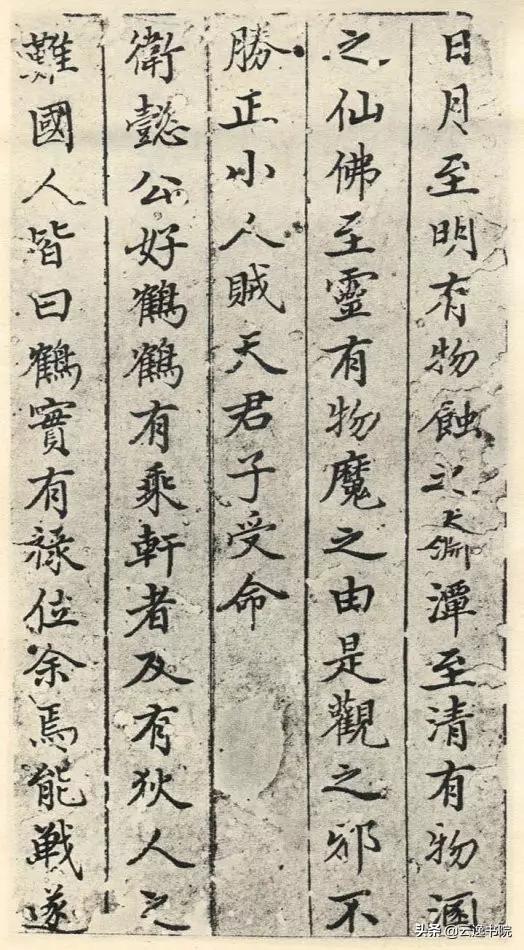 日月至明有物蝕之淵潭至清有物溷
之仙佛至靈有物魔之由是觀之邪不
勝正小人賊天君子受命
衛懿公好鶴鶴有乘軒者及有狄人之
難國人皆曰鶴實有祿位余焉能戰遂
头条 @云逸书院